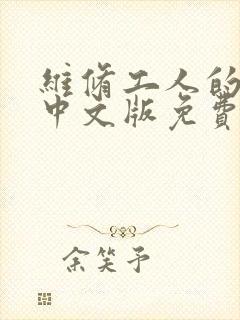 維脩工人的
中文版免費
余笑予